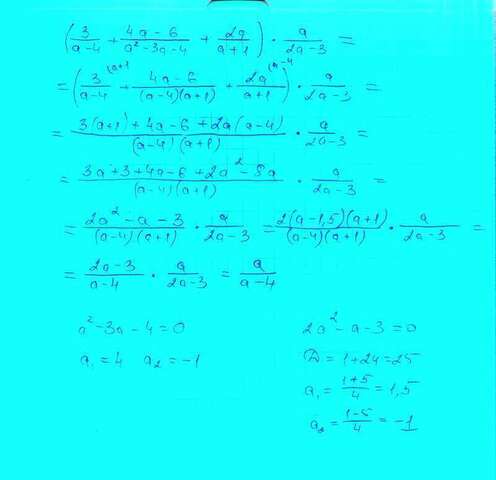 (3/(a-4) + (4a-6)/(a²-3a-4) + 2a/(a+1)) · a/(2a-3) =
= (3/(a-4) (a+1 + (4a-6)/((a-4)(a+1)) + 2a/(a+1) (a-4) · a/(2a-3) =
= (3(a+1)+4a-6+2a(a-4))/((a-4)(a+1)) · a/(2a-3) =
= (3a+3+4a-6+2a²-8a)/((a-4)(a+1)) · a/(2a-3) =
= (2a²-a-3)/((a-4)(a+1)) · a/(2a-3) = (2(a-1,5)(a+1))/((a-4)(a+1)) · a/(2a-3) =
= (2a-3)/(a-4) · a/(2a-3) = a/(a-4)
a²-3a-4=0
a₁=4 a₂=-1
2a²-a-3=0
D=1+24=25
a₁=(1+5)/4=1,5
a₂=(1-5)/4=-1